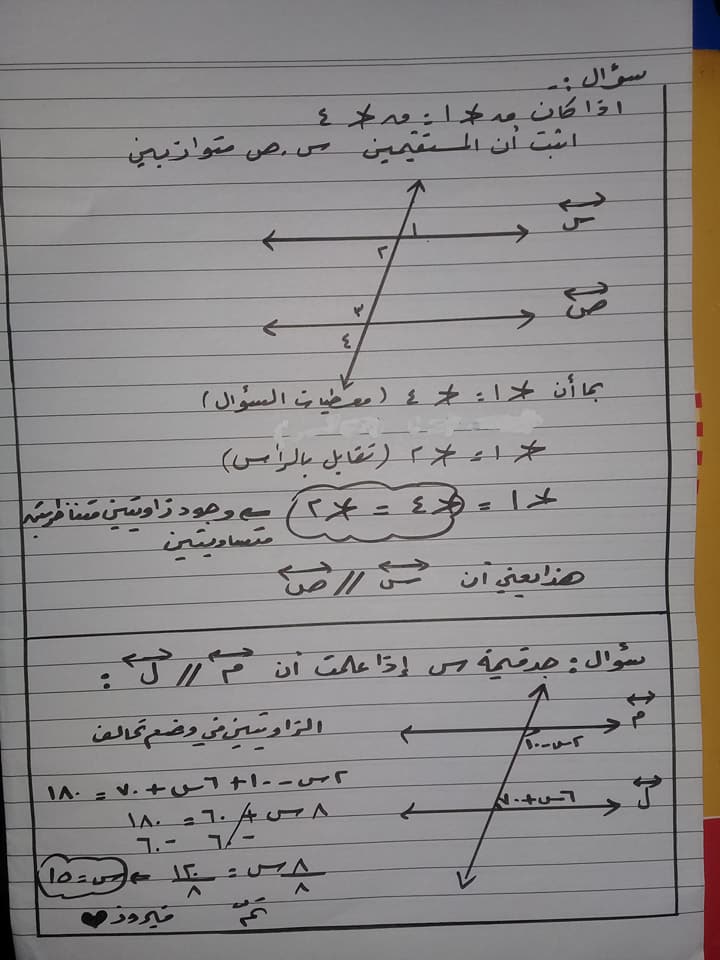 سؤال :-
اذا كان قـ∡١ = قـ∡٤
اثبت أن المستقيمين س، ص متوازيين
س
١
٢
ص
٣
٤
بما أن ∡١ = ∡٤ (معطيات السؤال)
∡١ = ∡٢ (تقابل بالرأس)
∡١ = ∡٤ = ∡٢ ← وجود زاويتين متناظرتين
متساويتين
هذا يعني أن س // ص
سؤال : جد قيمة س إذا علمت أن م // ل :
م
٢س-١٠
ل
٦س+٧٠
الزاويتين في وضع تحالف
٢س-١٠+٦س+٧٠ = ١٨٠
٨س+٦٠ = ١٨٠
-٦٠ -٦٠
٨س/٨ = ١٢٠/٨ ← س=١٥
تمّ فيروز ♥